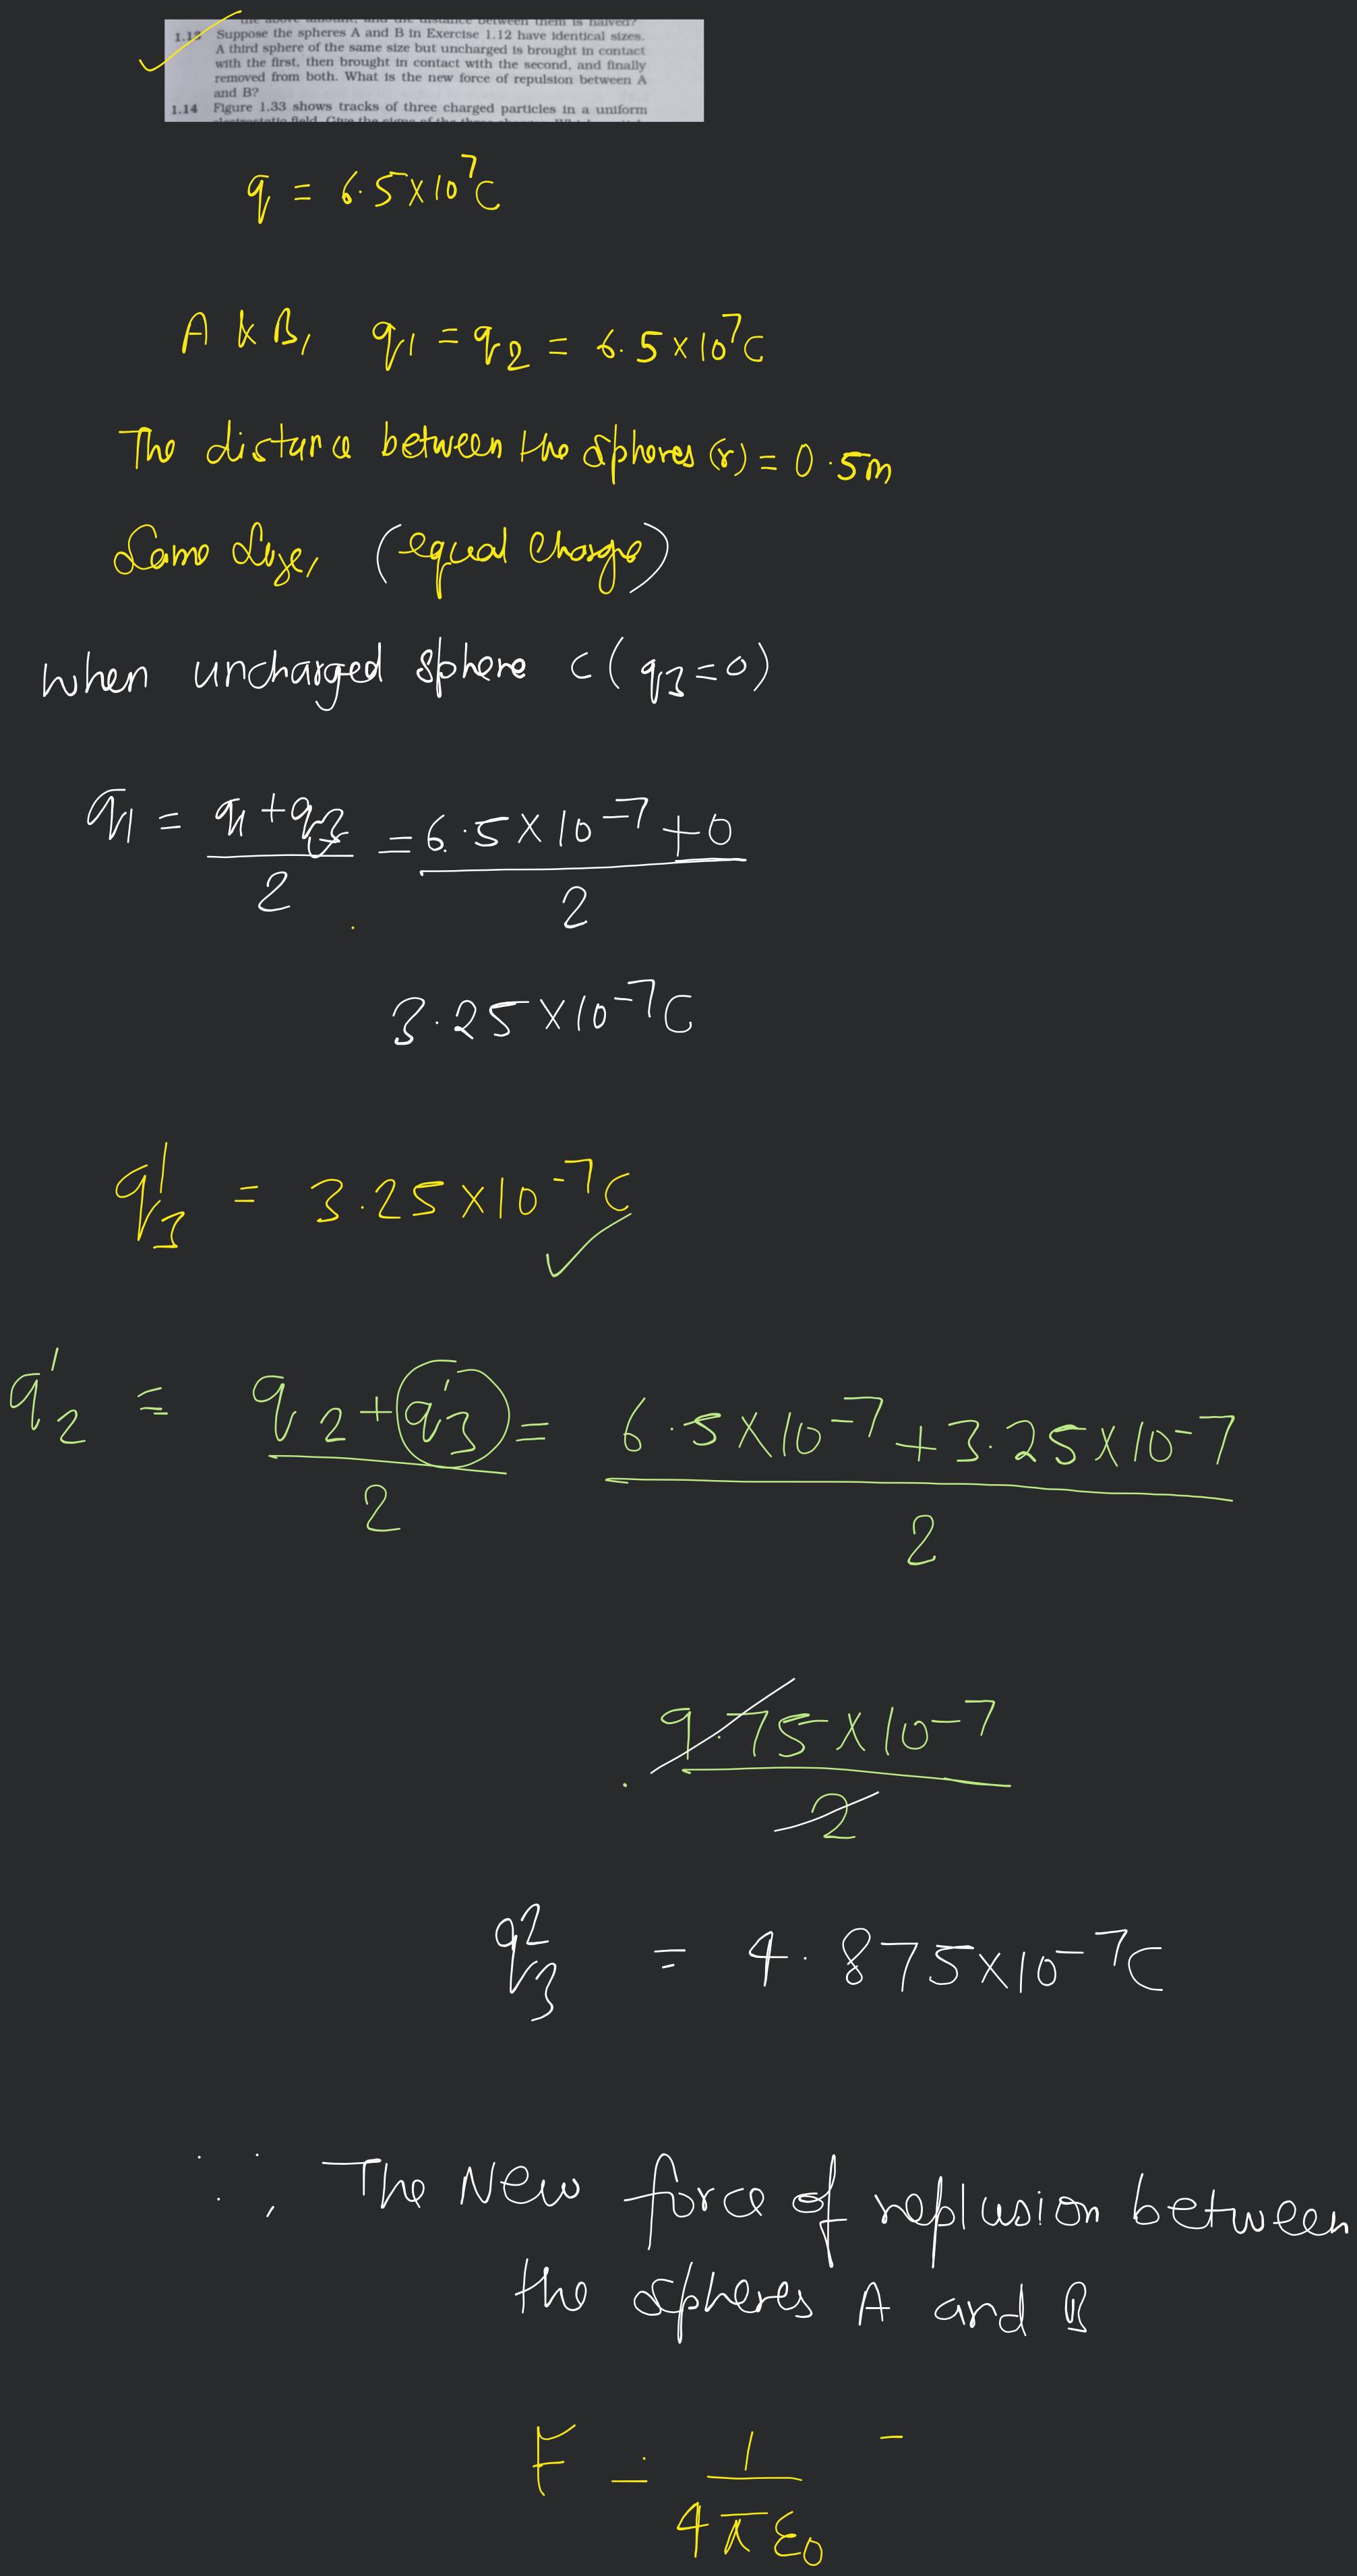 the above amount, and the distance between them is halved?
1.13 Suppose the spheres A and B in Exercise 1.12 have identical sizes.
A third sphere of the same size but uncharged is brought in contact
with the first, then brought in contact with the second, and finally
removed from both. What is the new force of repulsion between A
and B?
1.14 Figure 1.33 shows tracks of three charged particles in a uniform
electrostatic field. Give the signs of the three charges.
q = 6.5×10⁷C
A & B, q1 = q2 = 6.5×10⁷C
The distance between the spheres (r) = 0.5m
Same size, (equal charge)
when uncharged sphere C (q3=0)
q1 = (q1+q3)/2 = (6.5×10⁻⁷+0)/2
3.25×10⁻⁷C
q'3 = 3.25×10⁻⁷C
q'2 = (q2+q'3)/2 = (6.5×10⁻⁷+3.25×10⁻⁷)/2
9.75×10⁻⁷/2
q²3 = 4.875×10⁻⁷C
∴, The New force of replusion between
the spheres A and B
F = 1/4πε0 -